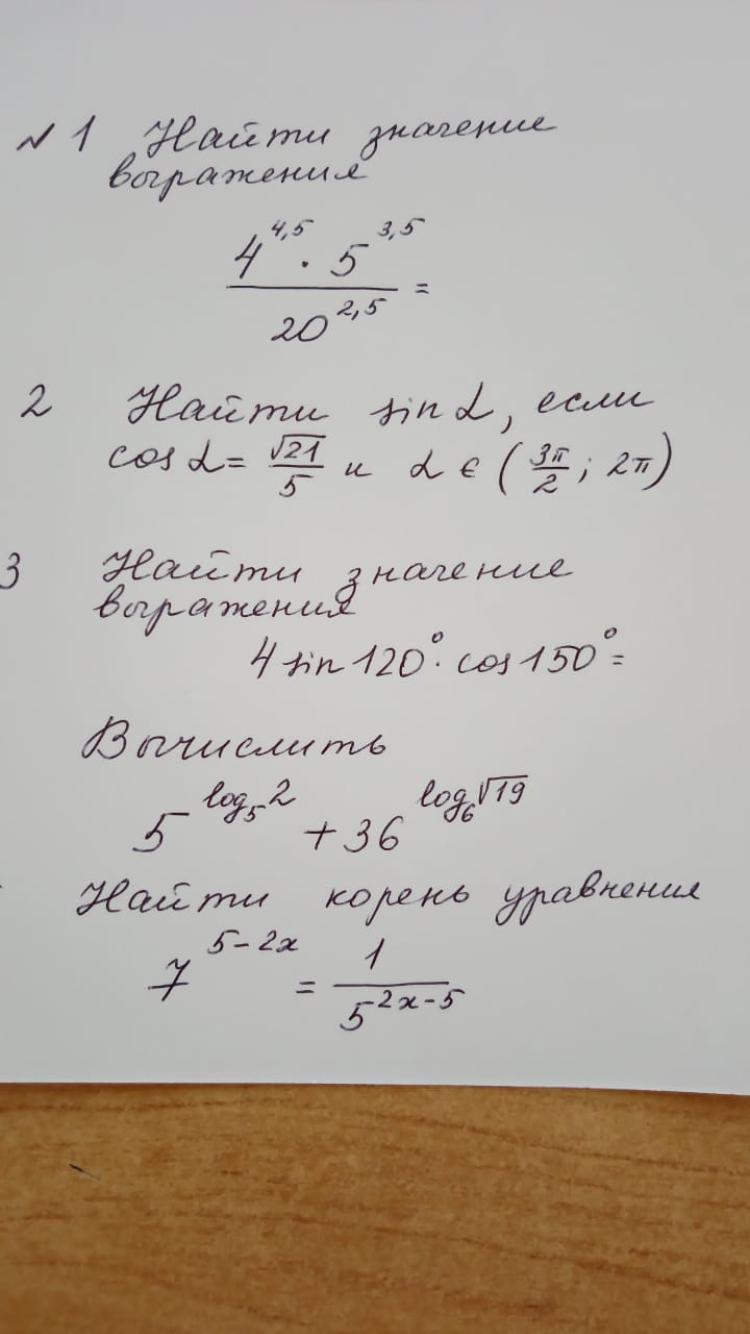 № 1 Найти значение
выражения
4^4,5 · 5^3,5 / 20^2,5 =
2 Найти sin α, если
cos α = √21/5 и α ∈ (3π/2; 2π)
3 Найти значение
выражения
4 sin 120° · cos 150° =
Вычислить
5^log₅2 + 36^log₆√19
Найти корень уравнения
7^5-2x = 1/5^2x-5